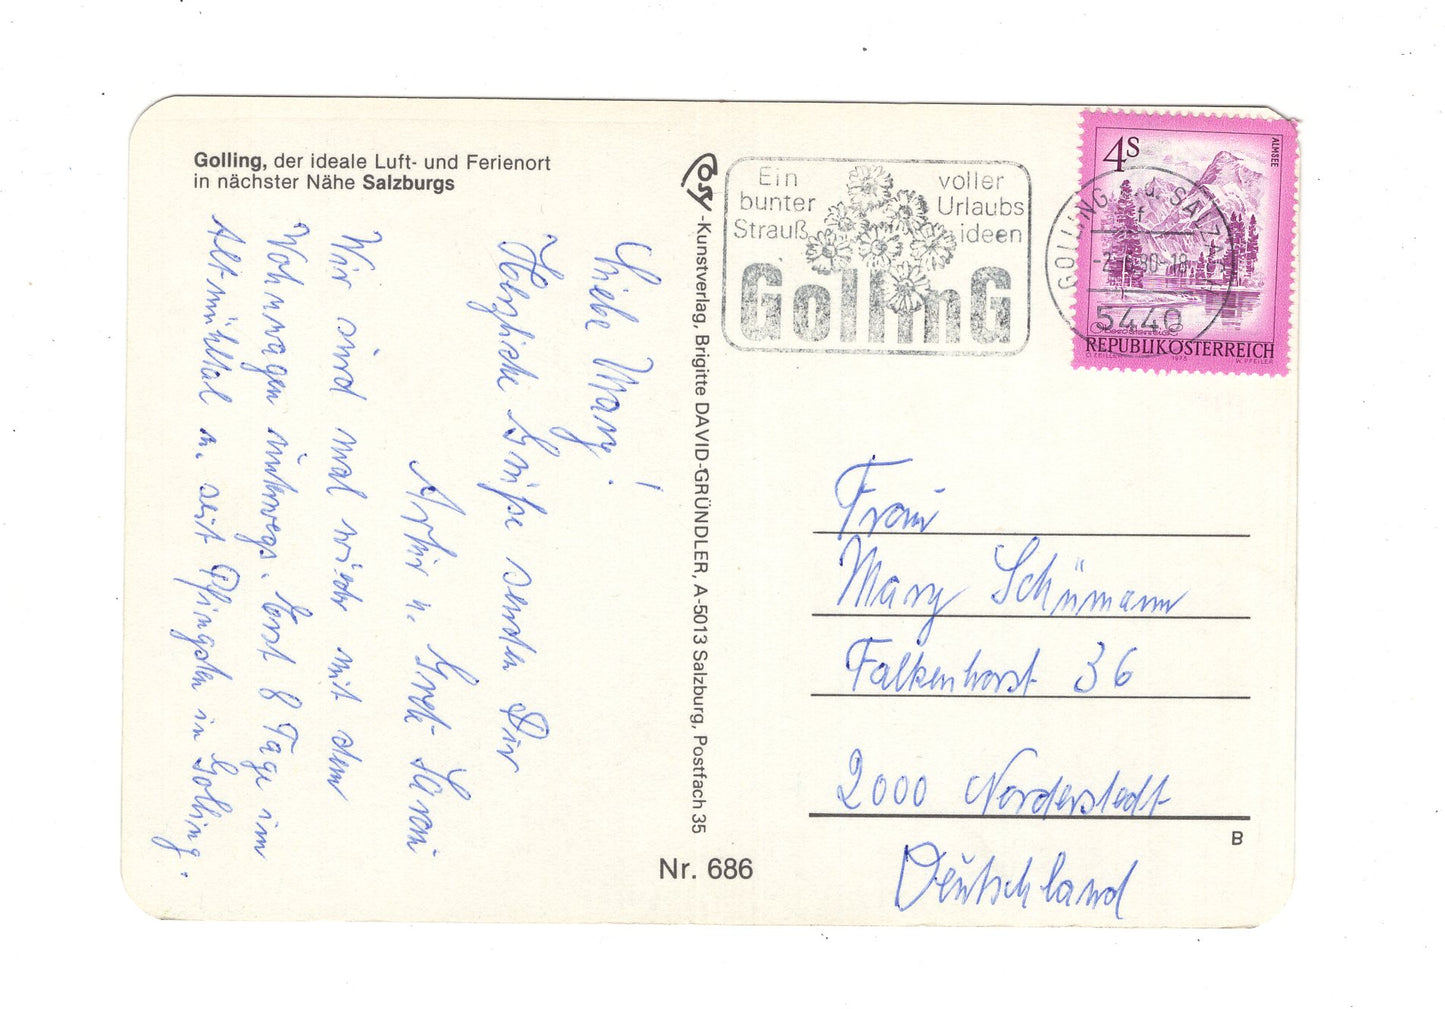 Golling, der ideale Luft- und Ferienort
in nächster Nähe Salzburgs
Liebe Mary!
Herzliche Grüße senden Dir
Artur u. Gret
Wir sind mal wieder mit dem
Wohnwagen unterwegs. Erst 8 Tage im
Altmühltal u. seit Pfingsten in Golling.
-Kunstverlag, Brigitte DAVID-GRÜNDLER, A-5013 Salzburg, Postfach 35
Nr. 686
Ein
bunter
Strauß
voller
Urlaubs
ideen
GollinG
GOLLING a.d. SALZACH
f
80-18
5440
4S
ALMSEE
REPUBLIK ÖSTERREICH
1973
W. PFEILER
Frau
Mary Schümann
Falkenhorst 36
2000 Norderstedt
B
Deutschland